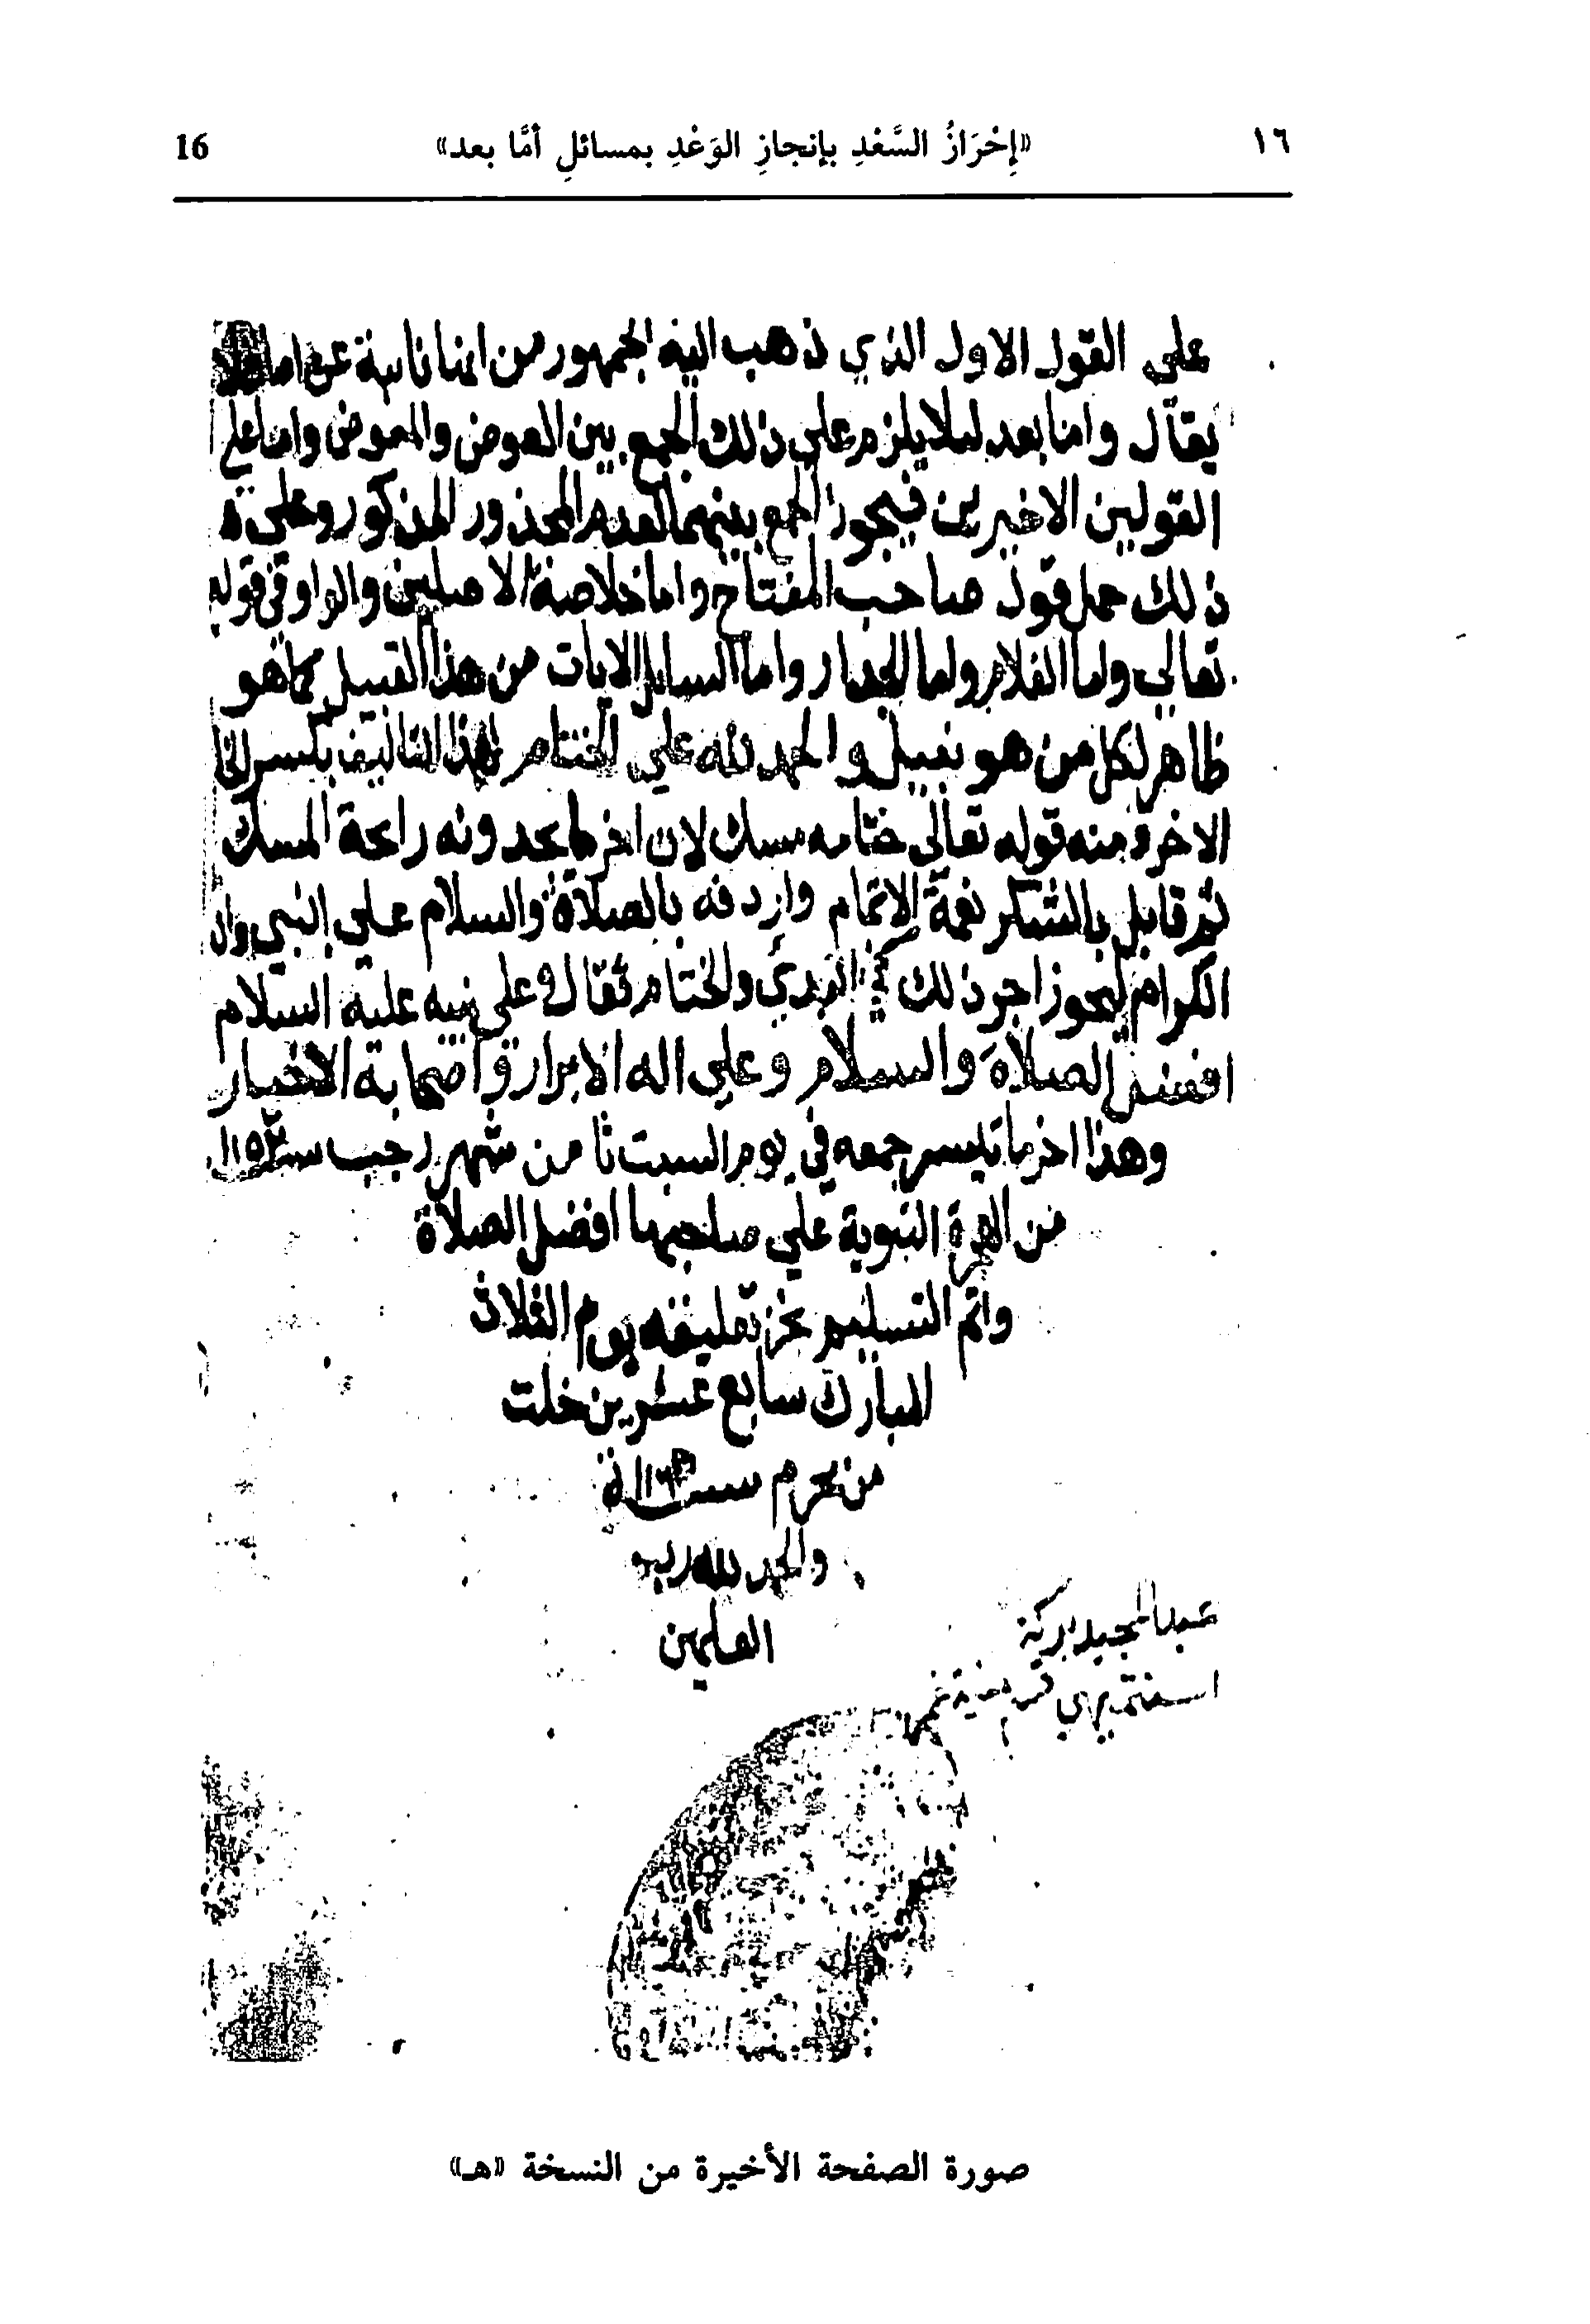 ١٦ «إِحْرَازُ السَّعْدِ بإنجازِ الوَعْدِ بمسائلِ أمَّا بعد» 16
على القول الاول الذي ذهب اليه الجمهور من انها نائبة عن اما فلا
يقال واما بعد ليلا يلزم علي ذلك الجمع بين العوض والمعوض واما علي
القولين الاخيرين فيجوز الجمع بينهما لعدم المحذور المذكور وعلى
ذلك حمل قول صاحب المفتاح واما خلاصة الاصلين والواو في قوله
تعالي واما الغلام واما الجدار واما السايل الايات من هذا القبيل كما هو
ظاهر لكل من هو نبيل والحمد لله علي الختام لهذا التاليف بكسر الخا
الاخر ومنه قوله تعالي ختامه مسك لان اخر ما يجدونه رايحة المسك
ثم قابل بالشكر نعمة الاتمام واردفه بالصلاة والسلام علي النبي وال
الكرام ليحوز اجر ذلك في البدئ والختام فقال وعلي نبيه عليه السلام
افضل الصلاة والسلام وعلي اله الابرار واصحابه الاخيار
وهذا اخر ما تيسر جمعه في يوم السبت ثامن شهر رجب سنة ١١٥٣
من الهجرة النبوية علي صاحبها افضل الصلاة
واتم التسليم نجز تعليقه يوم الثلاث
المبارك سابع عشرين خلت
من محرم سنة ١١٦٣
والحمد لله رب
العلمين
عبد المجيد بركة
صورة الصفحة الأخيرة من النسخة «هـ»